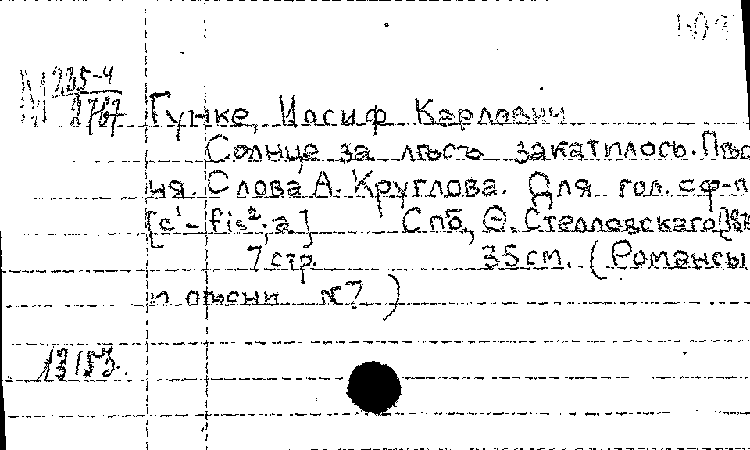 М 235-4
8767 Гунке, Иосиф Карлович
Солнце за лѣсъ закатилось. Пѣс
ня. Слова А. Круглова. Для гол. с ф-п
[c¹-fis²; a] Спб, Ѳ. Стелловскаго
7 стр. 35 см. (Романсы
и пѣсни №7)
13153.